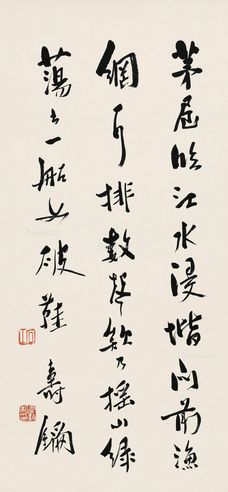 茅屋臨江水浸堦門前漁
網排數聲欸乃搖山綠
蕩出一船如破鞋 壽鑈